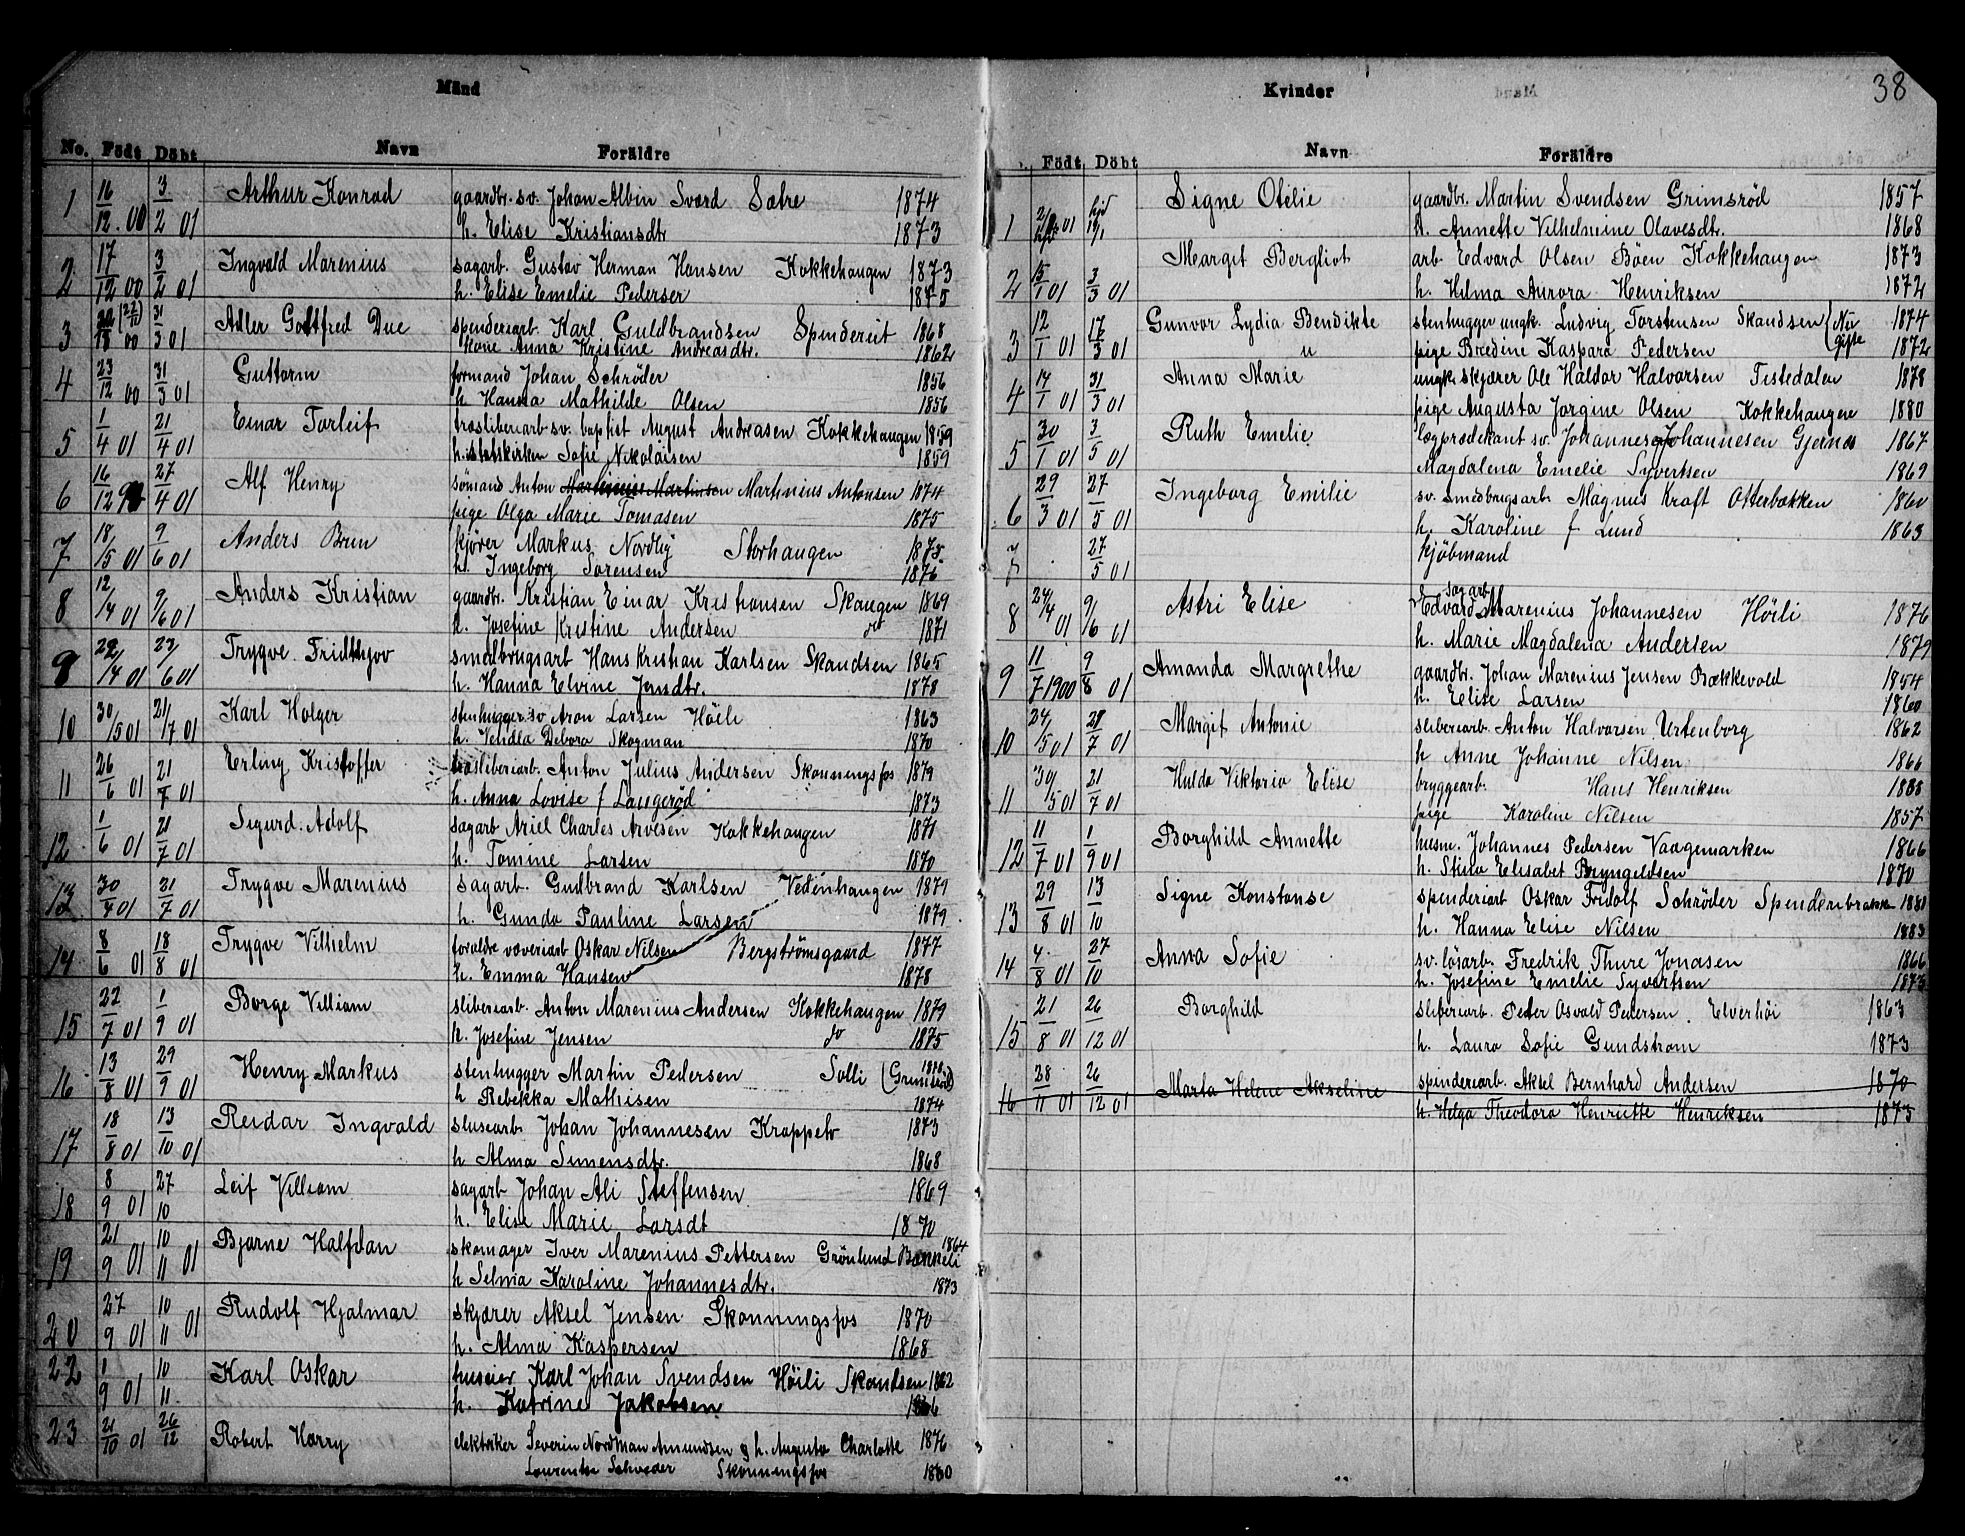 Mänd
No. Födt Döbt Navn Foräldre
1 16/12.00 3/2 01 Arthur Konrad gaardbr. sv. Johan Albin Svärd Sätre 1874
h. Elise Kristiansdtr 1873
2 17/12 00 3/2 01 Ingvald Marenius sagarb. Gustav Herman Hansen Kokkehaugen 1873
h. Elise Emelie Pederser 1875
3 00 31/3 01 Adler Gottfred Due spenderiarb. Karl Guldbrandsen Spinderiet 1868
kone Anna Kristine Andreasdtr. 1862
4 23/12 00 31/3 01 Guttorm formand Johan Schröder 1856
h Hanna Mathilde Olsen 1856
5 1/4 01 21/4 01 Einar Torleif träsliberiarb sv. baptist August Andreasen Kokkehaugen 1859
h. i statskirken Sofie Nikolaisen 1859
6 16/12 27/4 01 Alf Henry sömand Anton Martinius Martinsen Martinius Antonsen 1874
pige Olga Marie Tomasen 1875
7 18/5 01 9/6 01 Anders Brun kjörer Markus Nordlij Storhaugen 1875
h. Ingeborg Sörensen 1876
8 12/4 01 9/6 01 Anders Kristian gaardbr. Kristian Einar Kristiansen Skaugen 1869
h. Josefine Kristine Andersen do 1871
9 22/4 01 23/6 01 Trygve Fridthjov smedbrugsarb Hans Kristian Karlsen Skandsen 1865
h. Hanna Elvine Jensdtr. 1878
10 30/5 01 21/7 01 Karl Holger stenhugger sv Aron Larsen Höili 1863
h. Vendla Debora Skogman 1870
11 26/6 01 21/7 01 Erling Kristoffer träsliberiarb. Anton Julius Andersen Skonningsfos 1879
h. Anna Lovise f Laugeröd 1873
12 1/6 01 21/7 01 Sigurd Adolf sagarb Ariel Charles Arvesen Kokkehaugen 1871
h. Tomine Larsen 1870
13 30/4 01 21/7 01 Trygve Marenius sagarb. Gudbrand Karlsen Vedenhaugen 1879
h. Gunda Pauline Larsen 1879
14 8/6 01 18/8 01 Trygve Vilhelm foraldre væveriarb Oskar Nilsen Bergströmsgaard 1877
h. Emma Hansen 1878
15 22/7 01 1/9 01 Borge Villiam sliberiarb. Anton Marenius Andersen Kokkehaugen 1879
h. Josefine Jensen do 1875
16 13/8 01 29/9 01 Henry Markus stenhugger Martin Pedersen Solli (Grimsröd)
h Rebekka Mathisen 1874
17 18/8 01 13/10 01 Reidar Ingvald sluse arb Johan Johannesen Krappeto 1873
h Alma Simensdtr. 1868
18 8/9 01 27/10 Leif Villiam sagarb Johan Ali Steffensen 1869
h. Elise Marie Larsdt 1870
19 21/9 01 10/11 01 Bjarne Halfdan skomager Iver Marenius Pettersen Grönlund Bækkeli 1864
h Selma Karoline Johannesdtr. 1873
20 27/9 01 10/11 01 Rudolf Hjalmar skjærer Aksel Jensen Skonningsfos 1870
h. Alma Kaspersen 1868
22 1/9 01 10/11 Karl Oskar huseier Karl Johan Svendsen Höili Skandsen 1862
h. Katrine Jakobsen 1866
23 21/10 01 26/12 Robert Harry elektriker Severin Nordman Amundsen g h. Augusta Charlotte 1876
Laurentse Schrøder Skonningsfos 1860
38
Kvinder
Födt Döbt Navn Foräldre
1 01 Signe Otelie gaardbr. Martin Svendsen Grimsröd 1857
h. Annette Vilhelmine Olavesdtr. 1868
2 15/1 01 3/3 01 Margit Bergliot arb Edvard Olsen Böen Kokkehaugen 1873
h. Hilma Aurora Henriksen 1872
3 12/1 01 17/3 01 Gunvor Lydia Bendikte stenhugger ungk. Ludvig Torstensen Skandsen (Nu gifte 1874
u pige Bredine Kaspara Pedersen 1872
4 14/1 01 31/3 01 Anna Marie ungk. skjærer Ole Haldor Halvorsen Tistedalen 1878
pige Augusta Jorgine Olsen Kokkehaugene 1880
5 30/1 01 3/5 01 Ruth Emelie lægprædekant sv. Johannes Johannesen Gjernæs 1867
Magdalena Emelie Syvertsen 1869
6 29/3 01 27/5 01 Ingeborg Emilie sv. smedbrugsarb Magnus Kraft Otterbækken 1860
h. Karoline f Lund 1863
7 27/5 01 kjöbmand
8 24/4 01 9/6 01 Astri Elise sagarb Edvard Marenius Johannesen Höili 1876
h. Marie Magdalena Andersen 1879
9 11/7 1900 9/8 01 Amanda Margrethe gaardbr. Johan Marenius Jensen Bækkevold 1854
h. Elise Larsen 1860
10 24/5 01 28/7 01 Margit Antonie sliberiarb. Anton Halvorsen Urtenborg 1862
h Anne Johanne Nilsen 1866
11 30/5 01 21/7 01 Hulda Viktoria Elise bryggearb. Hans Henriksen
pige Karoline Nilsen 1857
12 11/7 01 1/9 01 Borghild Annette husm. Johannes Pedersen Vaagemarken 1866
h. Skina Elisabet Bryngeldsen 1870
13 29/8 01 13/10 Signe Konstanse spinderiarb Oskar Fridolf Schröder Spenderibrakken 1881
h. Hanna Elise Nilsen 1883
14 4/8 01 27/10 Anna Sofie sv. lösarb. Fredrik Thure Jonasen 1866
h. Josefine Emelie Syvertsen 1873
15 21/8 01 26/12 01 Borghild sliberiarb. Peder Osvald Pedersen. Elverhöi 1863
h. Laura Sofie Gundstrom 1873
16 28/11 01 26/12 01 Marta Helene Akseline spinderiarb. Aksel Bernhard Andersen 1870
h. Helga Theodora Henriette Henriksen 1873